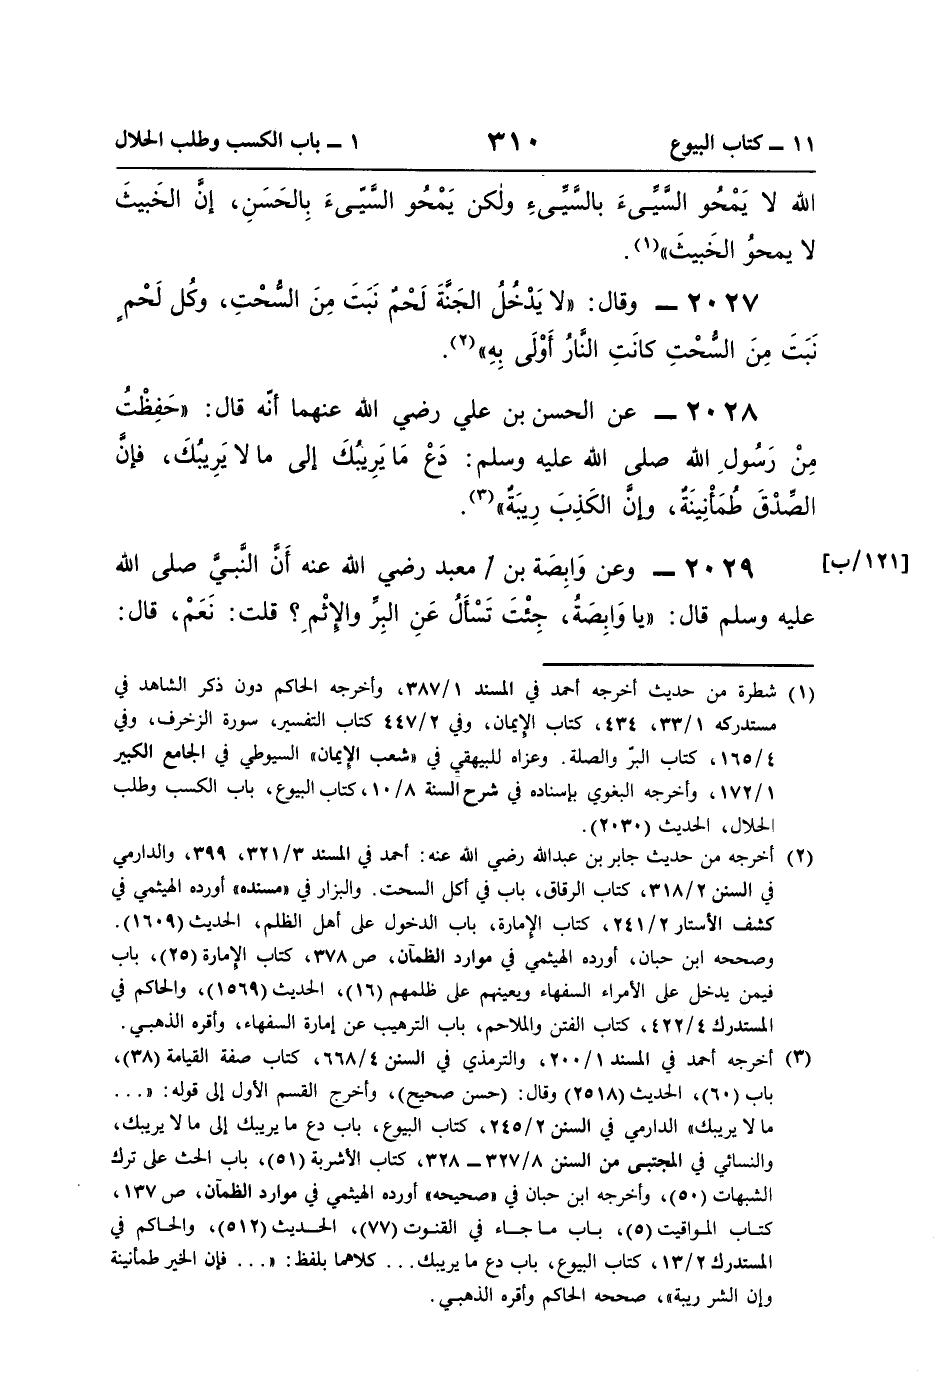 ١١ ـ كتاب البيوع ٣١٠ ١ ـ باب الكسب وطلب الحلال
الله لا يَمْحُو السَّيِّىءَ بالسَّيِّىءِ ولكن يَمْحُو السَّيِّىءَ بِالحَسَنِ، إنَّ الخَبيثَ
لا يمحوُ الخَبيثَ»(١).
٢٠٢٧ ـ وقال: «لا يَدْخُلُ الجَنَّةَ لَحْمٌ نَبَتَ مِنَ السُّحْتِ، وكُل لَحْمٍ
نَبَتَ مِنَ السُّحْتِ كانَتِ النَّارُ أَوْلَى بِهِ»(٢).
٢٠٢٨ ـ عن الحسن بن علي رضي الله عنهما أنّه قال: «حَفِظْتُ
مِنْ رَسُولِ الله صلى الله عليه وسلم: دَعْ مَا يَرِيبُكَ إلى ما لا يَرِيبُكَ، فإنَّ
الصِّدْقَ طُمَأْنِينَةٌ، وإنَّ الكَذِبَ رِيبَةٌ»(٣).
٢٠٢٩ ـ وعن وَابِصَة بن / معبد رضي الله عنه أَنَّ النَّبيَّ صلى الله [١٢١/ب]
عليه وسلم قال: «يا وَابِصَةُ، جِئْتَ تَسْأَلُ عَنِ البِرِّ والإِثْمِ؟ قلت: نَعَمْ، قال:
(١) شطرة من حديث أخرجه أحمد في المسند ٣٨٧/١، وأخرجه الحاكم دون ذكر الشاهد في
مستدركه ٣٣/١، ٤٣٤، كتاب الإيمان، وفي ٤٤٧/٢ كتاب التفسير، سورة الزخرف، وفي
١٦٥/٤، كتاب البرّ والصلة. وعزاه للبيهقي في «شعب الإيمان» السيوطي في الجامع الكبير
١٧٢/١، وأخرجه البغوي بإسناده في شرح السنة ١٠/٨، كتاب البيوع، باب الكسب وطلب
الحلال، الحديث (٢٠٣٠).
(٢) أخرجه من حديث جابر بن عبدالله رضي الله عنه: أحمد في المسند ٣٢١/٣، ٣٩٩، والدارمي
في السنن ٣١٨/٢، كتاب الرقاق، باب في أكل السحت. والبزار في «مسنده» أورده الهيثمي في
كشف الأستار ٢٤١/٢، كتاب الإمارة، باب الدخول على أهل الظلم، الحديث (١٦٠٩).
وصححه ابن حبان، أورده الهيثمي في موارد الظمآن، ص ٣٧٨، كتاب الإمارة (٢٥)، باب
فيمن يدخل على الأمراء السفهاء ويعينهم على ظلمهم (١٦)، الحديث (١٥٦٩)، والحاكم في
المستدرك ٤٢٢/٤، كتاب الفتن والملاحم، باب الترهيب عن إمارة السفهاء، وأقره الذهبي.
(٣) أخرجه أحمد في المسند ٢٠٠/١، والترمذي في السنن ٦٦٨/٤، كتاب صفة القيامة (٣٨)،
باب (٦٠)، الحديث (٢٥١٨) وقال: (حسن صحيح)، وأخرج القسم الأول إلى قوله: «...
ما لا يريبك» الدارمي في السنن ٢٤٥/٢، كتاب البيوع، باب دع ما يريبك إلى ما لا يريبك،
والنسائي في المجتبى من السنن ٣٢٧/٨ ـ ٣٢٨، كتاب الأشربة (٥١)، باب الحث على ترك
الشبهات (٥٠)، وأخرجه ابن حبان في «صحيحه» أورده الهيثمي في موارد الظمآن، ص ١٣٧،
كتاب المواقيت (٥)، باب ما جاء في القنوت (٧٧)، الحديث (٥١٢)، والحاكم في
المستدرك ١٣/٢، كتاب البيوع، باب دع ما يريبك... كلاهما بلفظ: «... فإن الخير طمأنينة
وإن الشر ريبة»، صححه الحاكم وأقره الذهبي.